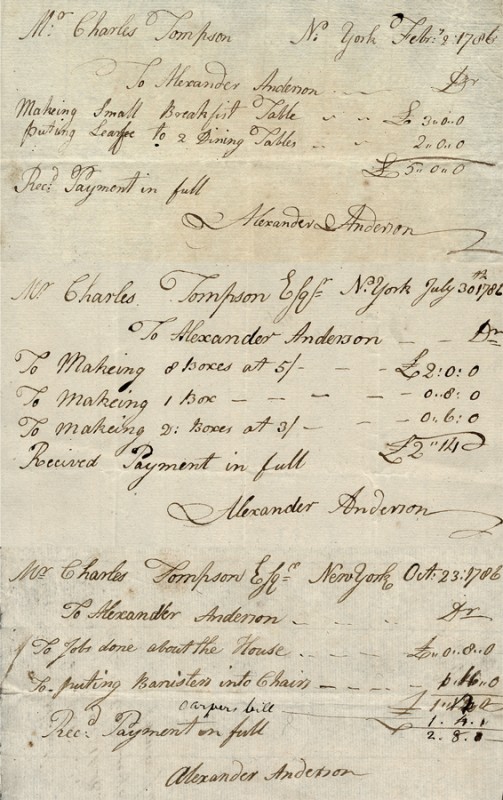 Mr Charles Tompson N. York Febry 2: 1786
To Alexander Anderson Dr
Makeing Small Breakfist Table £ 3"0"0
Puting Leafe to 2 Dining Tables 2"0"0
£ 5"0"0
Recd Payment in full
Alexander Anderson
Mr Charles Tompson Esqr No York July 30th 1786
To Alexander Anderson Dr
To Makeing 8 Boxes at 5/- £2:0:0
To Makeing 1 Box 0"8:0
To Makeing 2: Boxes at 3/- 0"6:0
£2"14
Recived Payment in full
Alexander Anderson
Mr Charles Tompson Esqr New York Oct: 23: 1786
To Alexander Anderson Dr
To Jobs done about the House £"0"8"0
To puting Banisters into Chairs 16"0
bill £ 1"
1.4.1
Recd Payment in full 2.8.0
Alexander Anderson